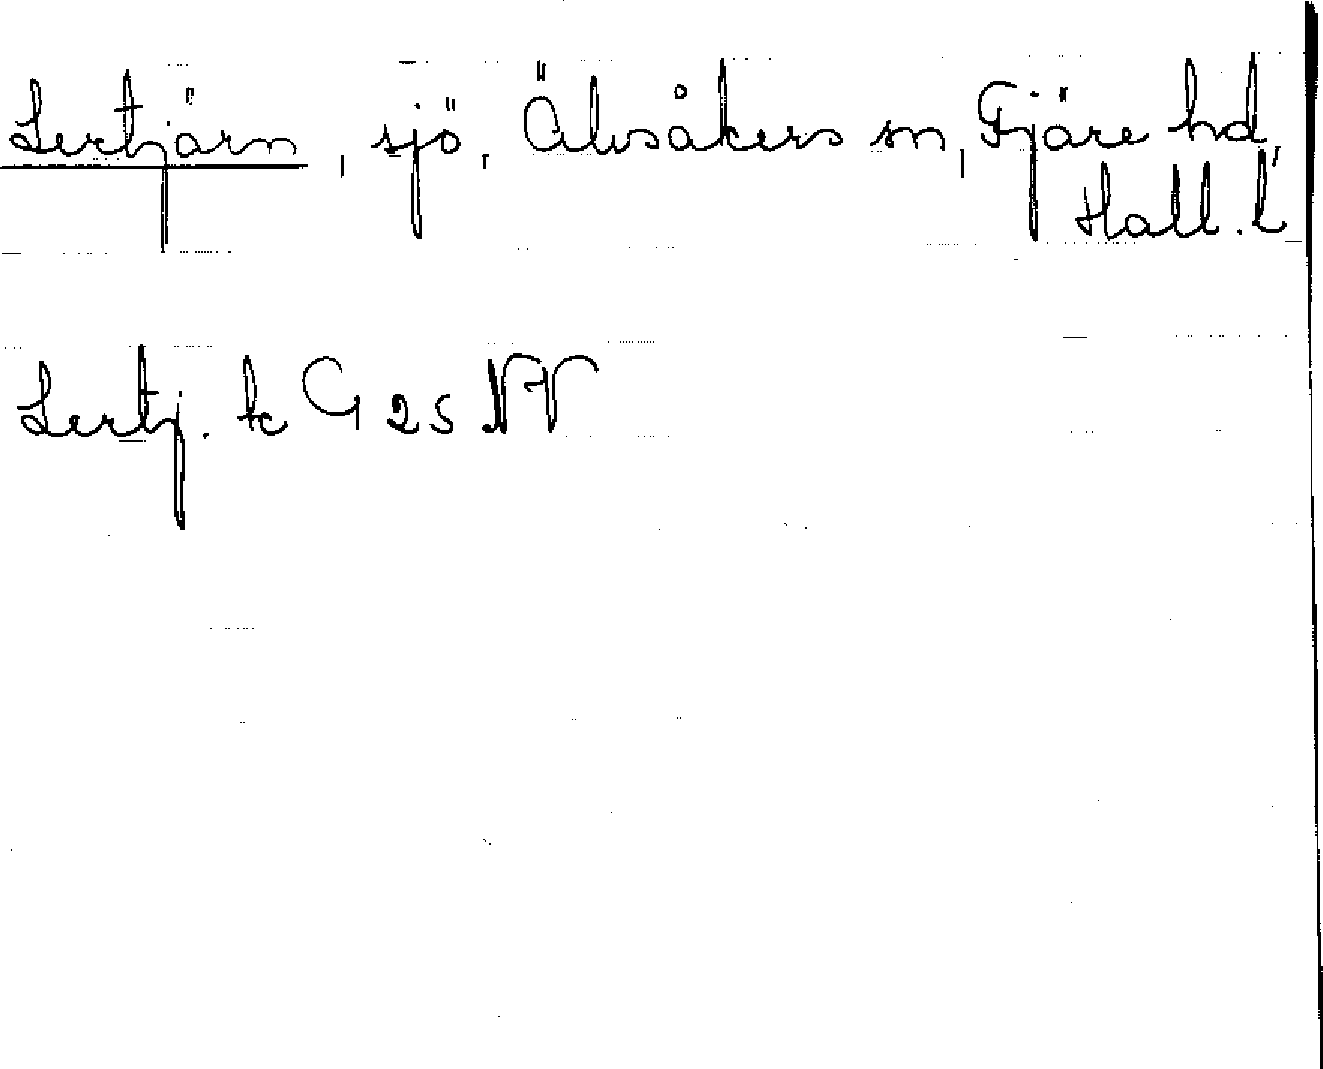 Lertjärn, sjö, Älvsåkers sn, Fjäre hd,
Hall. l
Lertj. tc G 25 NV